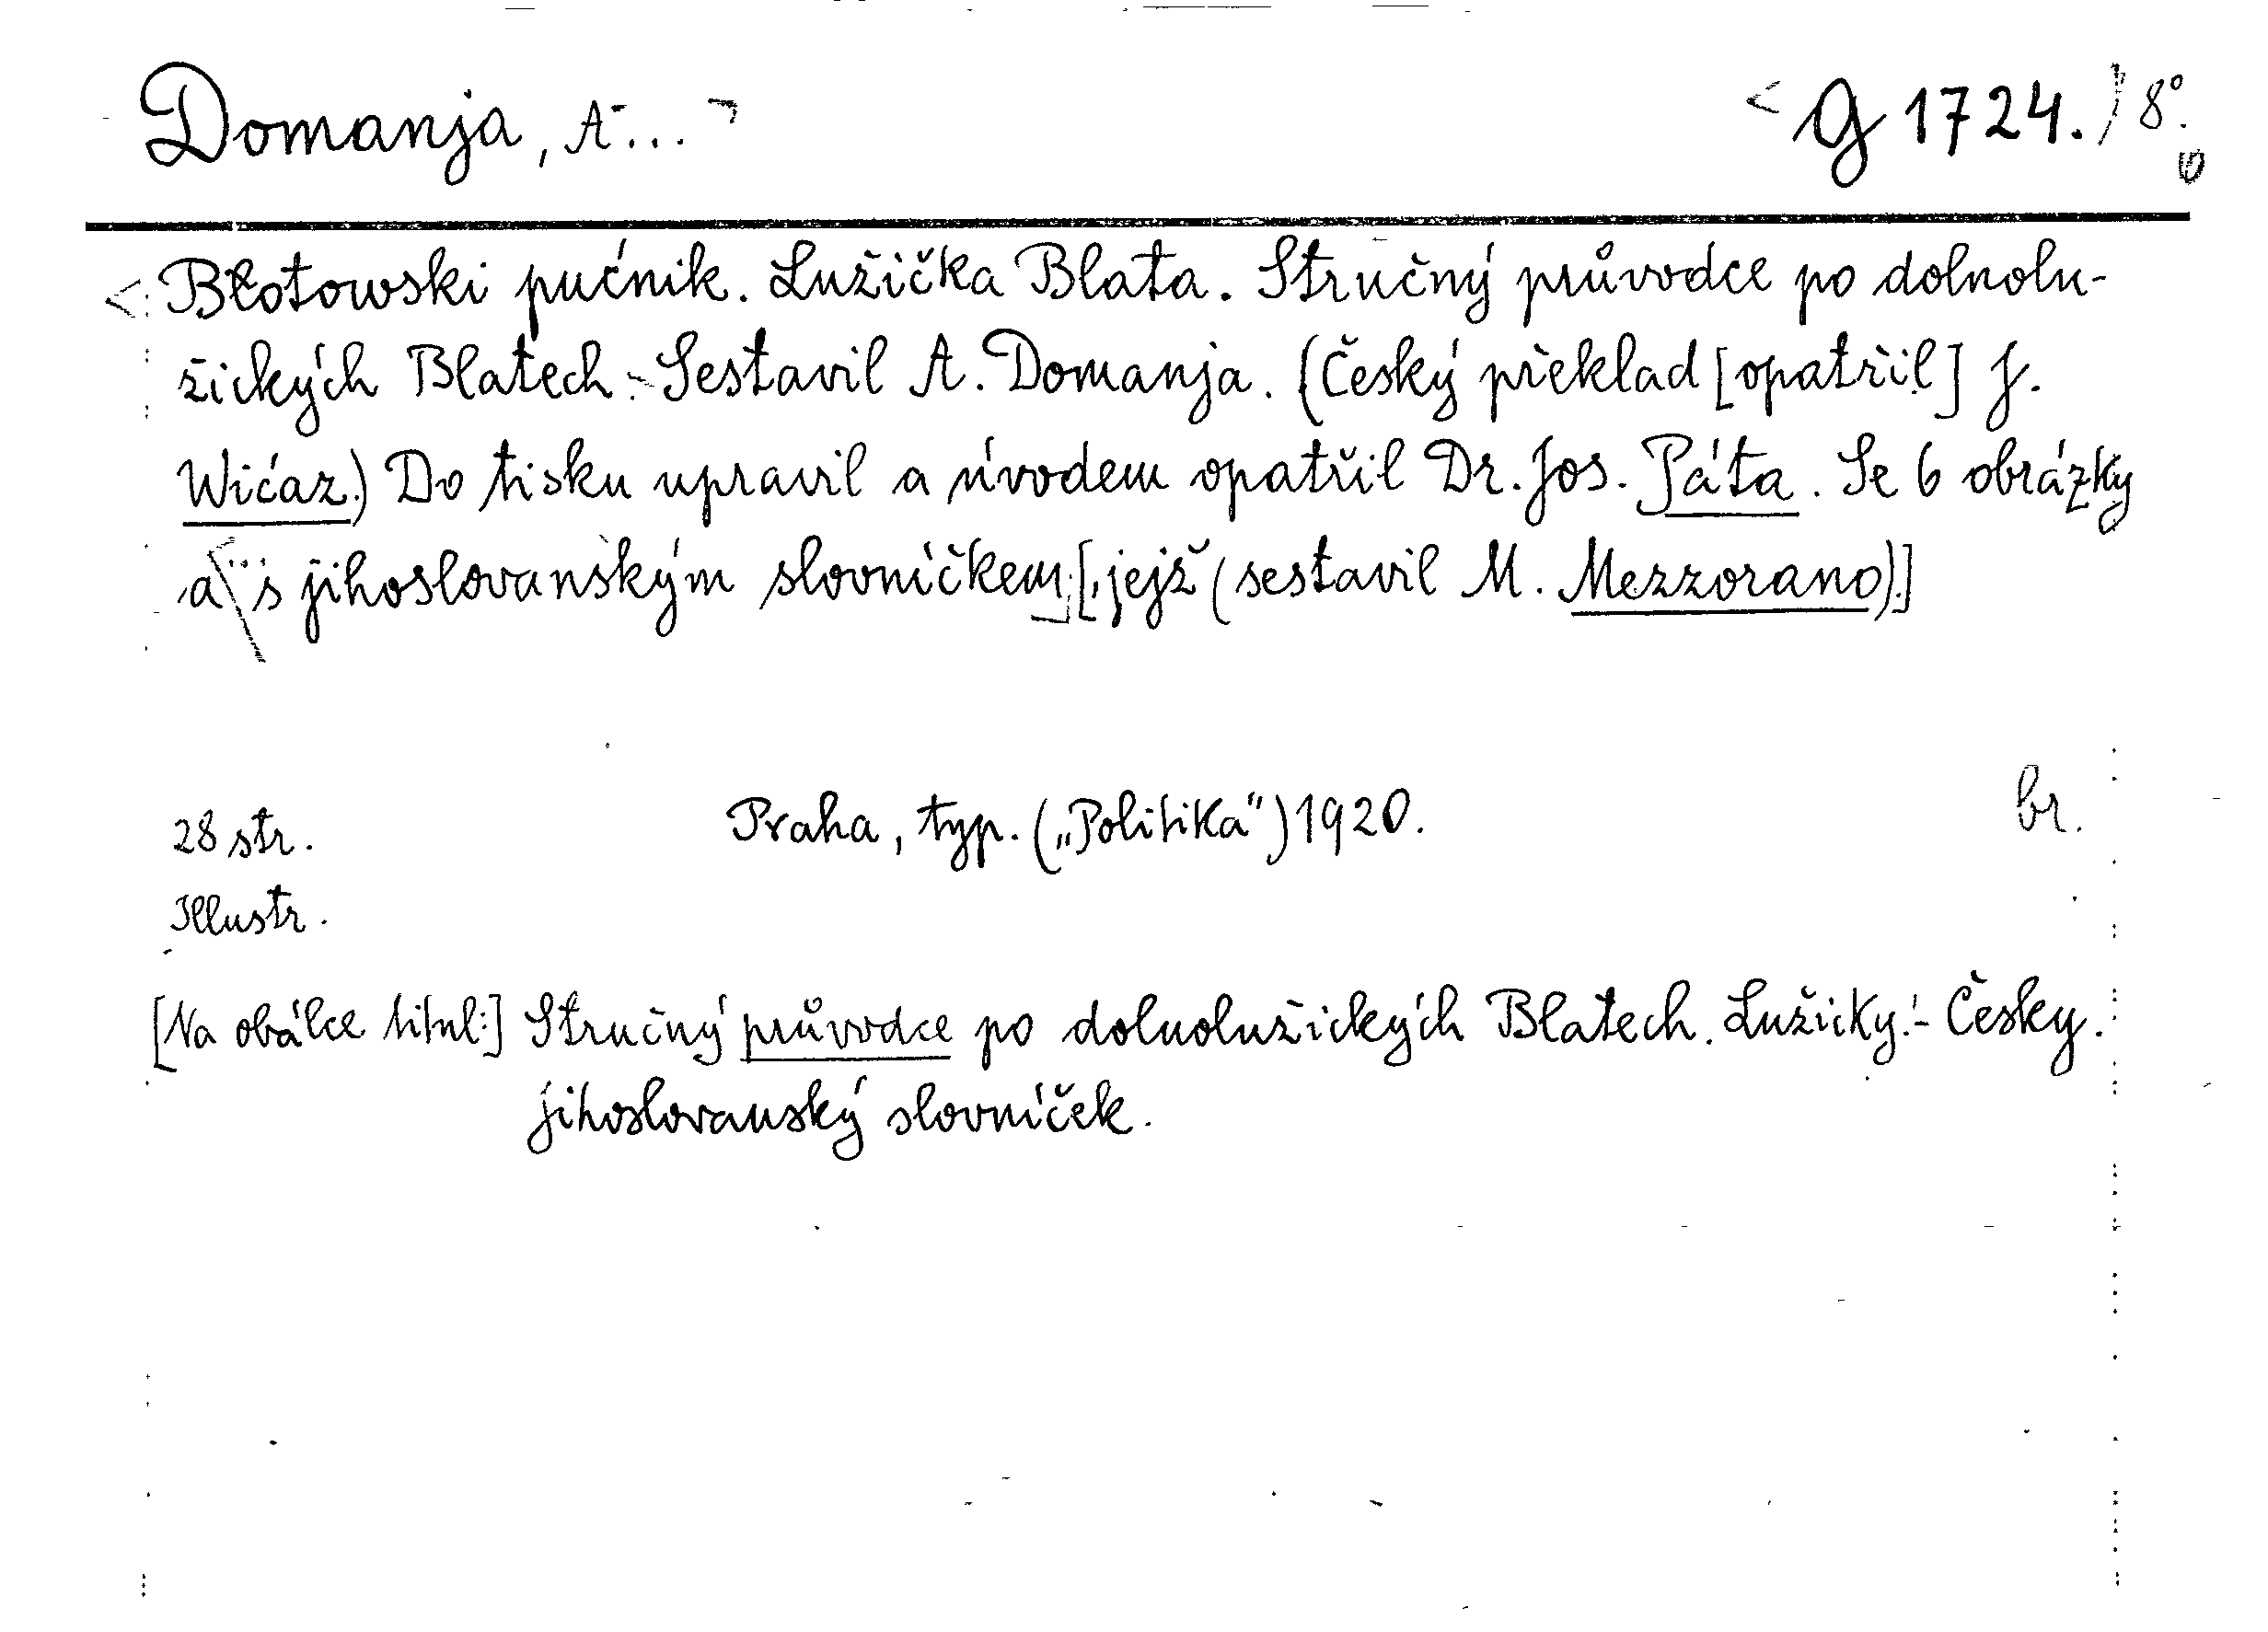 Domanja, A... g 1724. / 8°.
Błotowski pućnik. Lužička Blata. Stručný průvodce po dolnolu-
žických Blatech. - Sestavil A. Domanja. (Český překlad [opatřil] J.
Wićaz.) Do tisku upravil a úvodem opatřil Dr. Jos. Páta. Se 6 obrázky
a s jihoslovanským slovníčkem [, jejž (sestavil M. Mezzorano).]
28 str. Praha, typ. („Politika“) 1920. br.
Illustr.
[Na obálce titul:] Stručný průvodce po dolnolužických Blatech. Lužicky. - Česky.
jihoslovanský slovníček.